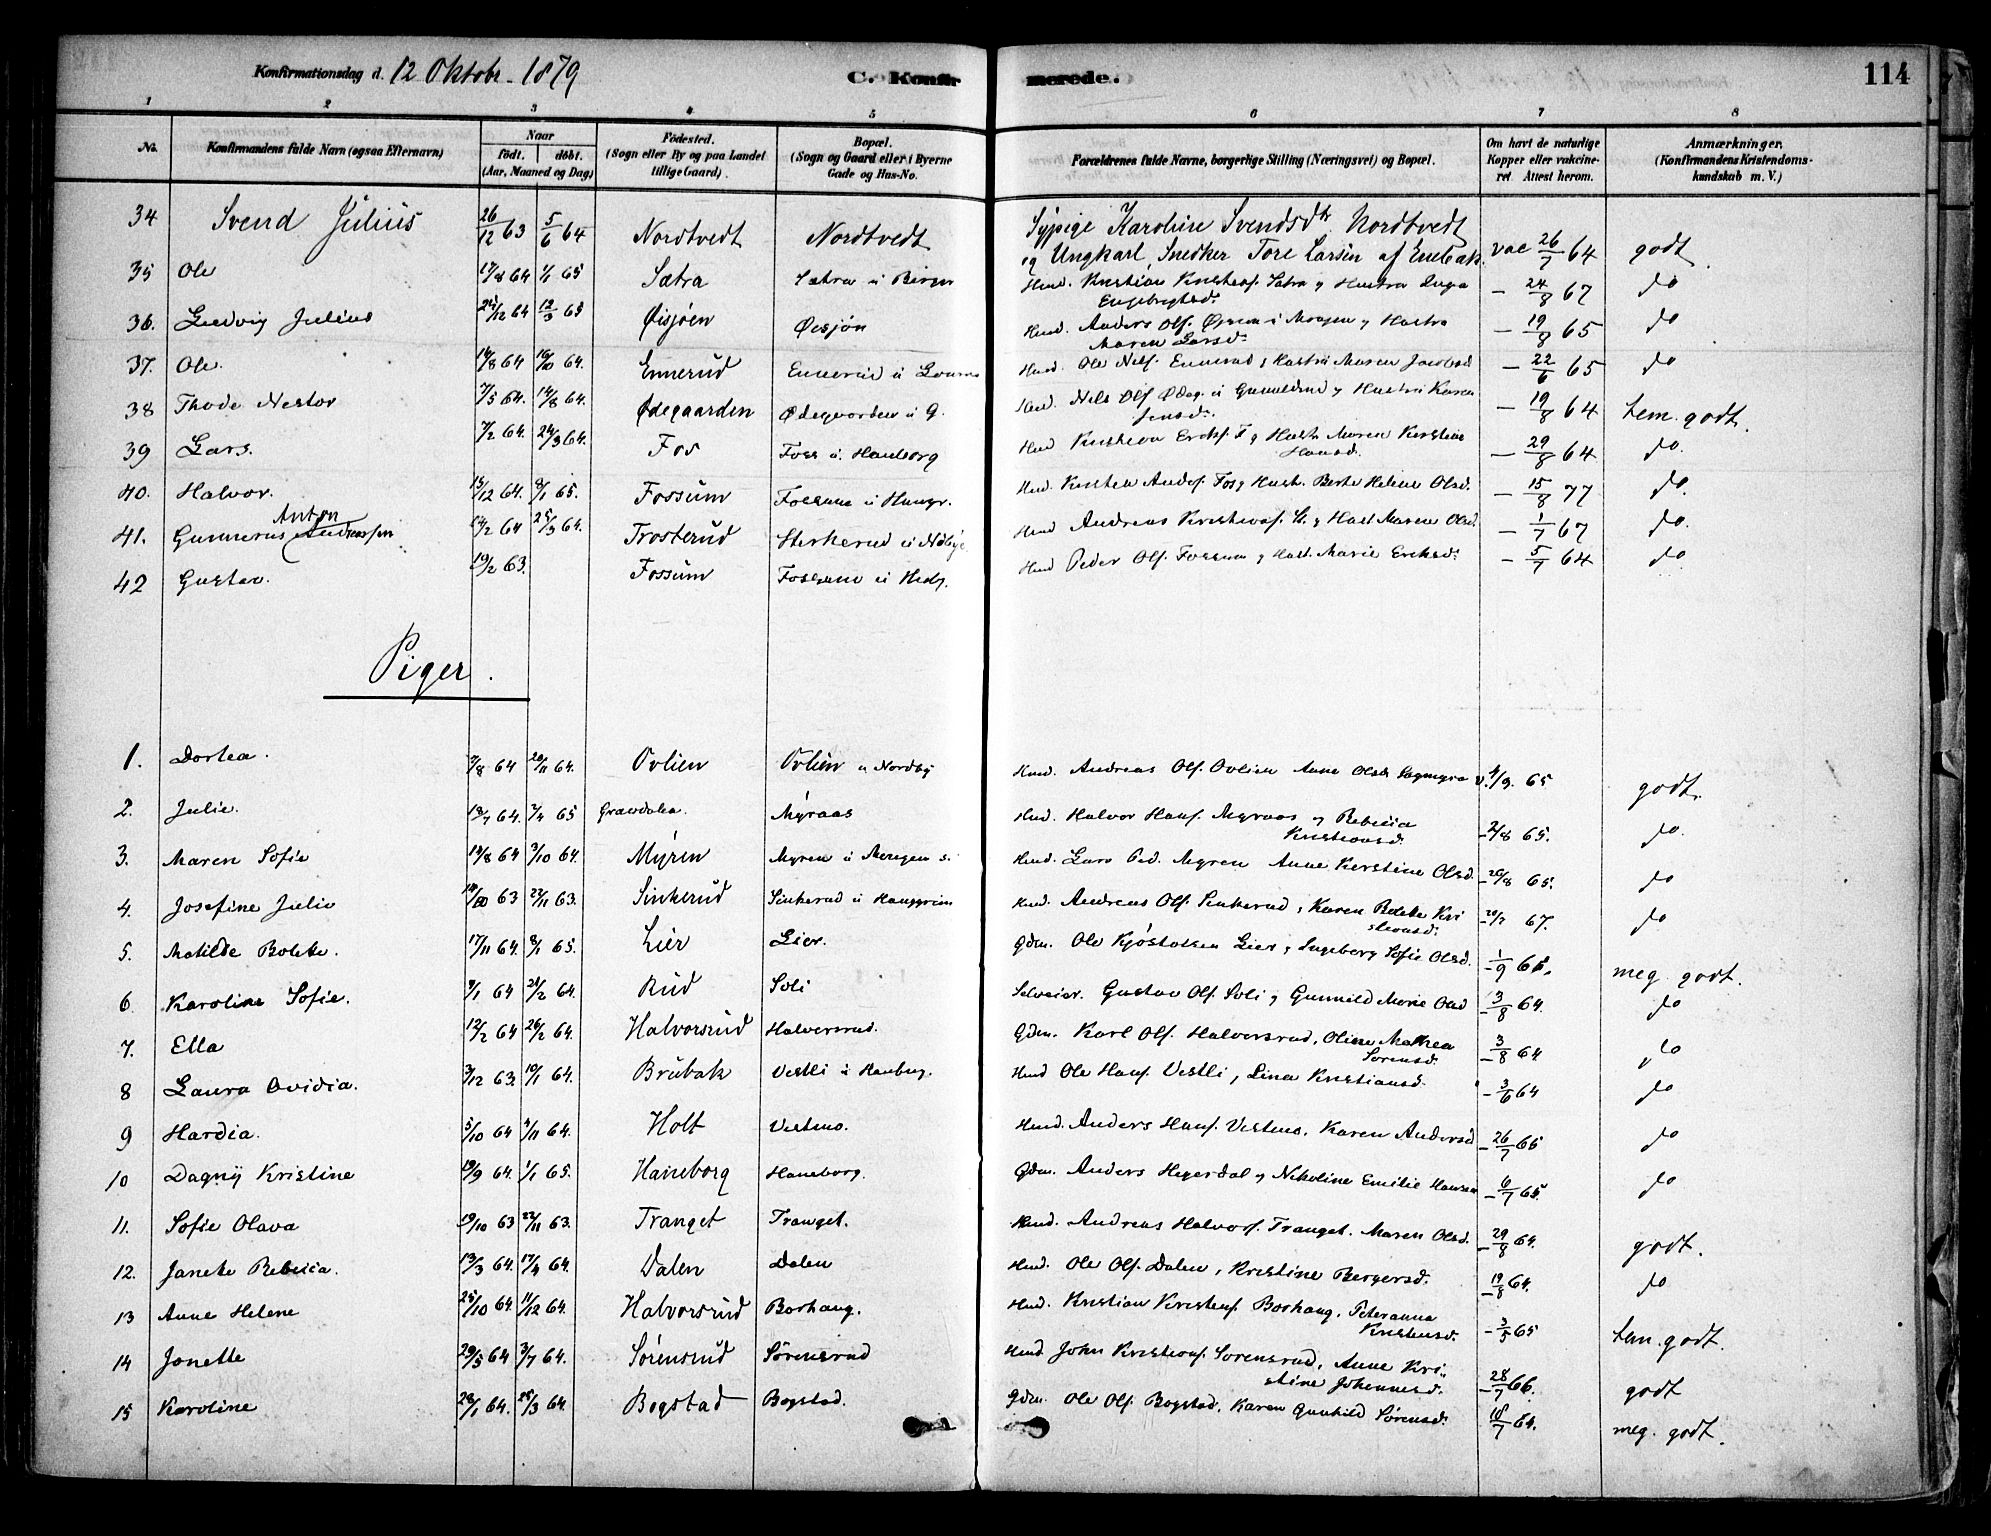 Konfirmationsdag d. 12 Oktobr. 1879 C. Konfir merede. 114
1 2 3 4 5 6 7 8
No. Konfirmandens fulde Navn (ogsaa Efternavn) Naar födt. döbt. (Aar, Maaned og Dag) Födested. (Sogn eller By og paa Landet tillige Gaard). Bopæl. (Sogn og Gaard eller i Byerne Gade og Hus-No. Forældrenes fulde Navne, borgerlige Stilling (Næringsvei) og Bopæl. Om havt de naturlige Kopper eller vakcineret. Attest herom. Anmærkninger. (Konfirmandens Kristendomskundskab m. V.)
34 Svend Julius 26/12 63 5/6 64 Nordtvedt Nordtvedt Sypige Karoline Svendsdtr Nordtvedt
og Ungkarl, Snedker Tore Larsen af Enebak. vac 26/7 64 godt.
35 Ole 17/8 64 1/1 65 Sætra Sætra u Bergn Husd. Kristian Kristens. Sætra og Hustru Inga - 24/8 67 do
Engebrigtsd.
36. Ludvig Julius 25/12 64 12/3 65 Øisjøen Øisjøn Husd. Anders Ols. - 19/8 65 do
Maren Larsd.
37. Ole. 14/8 64 16/10 64. Ennerud Ennerud u Husd. Ole Nils. Ennerud og Hustru Maren Jacobsd - 22/6 65 do
38 Thode Nestor 7/5 64. 14/8 64. Ødegaarden Ødegaarden u G. Husd. Nils Ols Ødeg. u Gunneldrud og Hustru Karen - 19/8 64 tem. godt.
Jensd.
39 Lars. 7/2 64. 24/3 64. Fos Foss u Haneborg Husd Kristian Ericks. F og Hustr Maren Kristine - 29/8 64 do.
Hansd.
40. Halvor. 13/12 64. 8/1 65. Fossum Fossum u Hangr. Husd. Kristen Anders. Fos og Hust. Berte Helene Olsd. - 15/8 77 do.
Anton
41. Gunnerus Andreassen 14/2 64 25/3 64. Trosterud Sterkerud u Nobye Husd Andreas Kristians. St. og Hust Maren Olsd - 1/7 67 do.
42 Gustav. 19/2 63. Fossum Fossum u Hedg. Husd Peder Ols. Fossum og Hust. Marie Ericksd. - 5/7 64 do
Piger.
1. Dortea. 7/8 64 20/11 64. Ovlien Ovlien u Nordby Husd. Andreas Ols. Ovlien Anne Olsd. Sagmyra v. 4/9. 65 godt.
2. Julie. 18/7 64. 2/4 65 Gravdalen. Myraas Husd. Halvor Hans. Myraas og Rebecca - 2/8 65. do.
Kristiansd.
3. Maren Sofie 14/8 64 3/10 64. Myren Myren u Morgen s. Husd. Lars Ped. Myren Anne Kerstine Olsd. - 26/8 65. do
4. Josefine Julie 14/10 63 22/11 63. Sinkerud Sinkerud u Hanggrim Husd. Andreas Ols. Sinkerud, Karen Bolete Kri - 20/7 67. do
stensd.
5. Matilde Bolette. 17/11 64. 8/1 65. Lier Lier. Gdm. Ole Kjøstolsen Lier og Ingeborg Sofie Olsd. - 1/9 65. meg. godt.
6 Karoline Sofie. 9/1 64 21/2 64. Rud Soli Selveier. Gustav Ols. Soli og Gunnild Marie Olsd - 3/8 64. do
7. Ella 12/2 64 26/2 64. Halvorsrud Halversrud. Gdm. Karl Ols. Halversrud, Oline Mathea - 3/8 64 do
Sorensd.
8 Laura Ovidia. 3/12 63. 10/1 64. Brubak Vestli u Haneborg. Husd Ole Hans. Vestli, Lina Kristiansd. - 3/6 64 do
9 Hardia. 5/10 64 4/11 64. Holt Vestmo. Husd. Anders Hans. Vestmo. Karen Andersd - 26/7 65 do
10 Dagny Kristine 19/9 64. 1/1 65. Haneborg Haneborg. Gdm. Anders Heyerdal og Nikoline Emilie Hansen - 6/7 65. do
11. Sofie Olava 19/10 63 22/11 63. Tranget Tranget. Husd. Andreas Halvors. Tranget. Maren Olsd. - 29/8 64. godt.
12. Janete Rebecca. 13/3 64. 17/4 64. Dalen Dalen Husd. Ole Ols. Dalen, Kristine Bergersd. - 19/8 64. do
13 Anne Helene 25/10 64. 11/12 64. Halvorsrud Borhaug. Husd. Kristian Kristens. Borhaug, Peteranna - 3/5 65 tem. godt.
Kristensd.
14 Jonette 29/5 64 3/7 64. Sørensrud Sørensrud Husd. John Kristians. Sorensrud, Anne Kri- - 28/7 66. godt
stine Johannesd.
15 Karoline 28/1 64. 28/3 64. Bogstad Bogstad. Gdm. Ole Ols. Bogstad, Karen Gunhild Sørensd. 18/7 64. meg. godt.